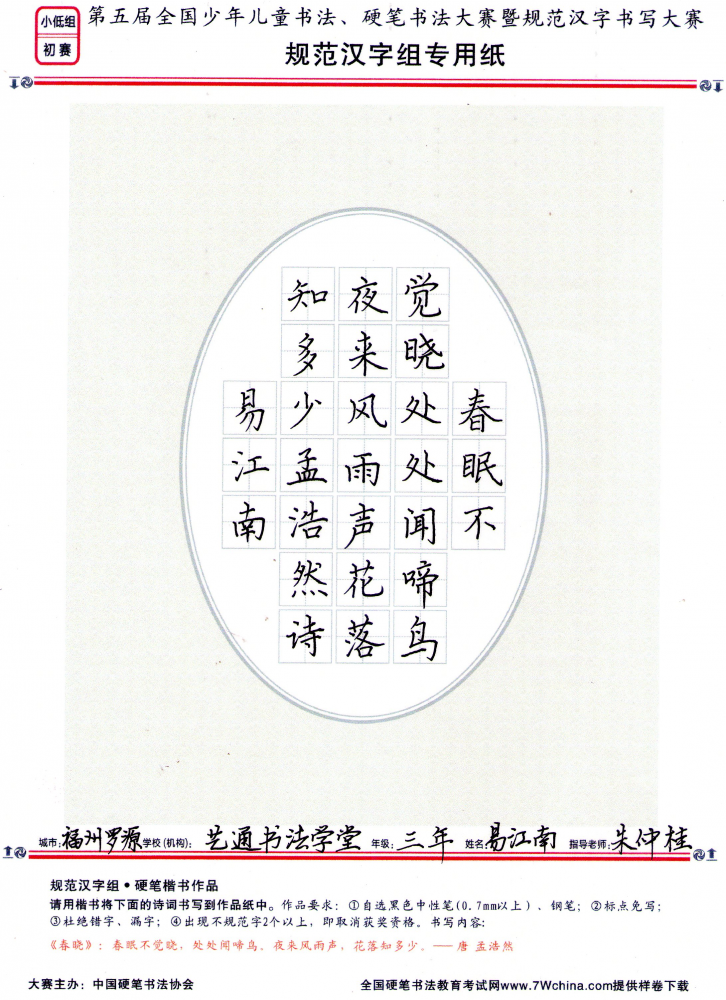 小低组
初赛
第五届全国少年儿童书法、硬笔书法大赛暨规范汉字书写大赛
规范汉字组专用纸
春眠不
觉晓处处闻啼鸟
夜来风雨声花落
知多少孟浩然诗
易江南
城市:福州罗源学校(机构):艺通书法学堂 年级:三年 姓名:易江南 指导老师:朱仲桂
规范汉字组•硬笔楷书作品
请用楷书将下面的诗词书写到作品纸中。作品要求:①自选黑色中性笔(0.7mm以上)、钢笔;②标点免写;
③杜绝错字、漏字;④出现不规范字2个以上,即取消获奖资格。书写内容:
《春晓》:春眠不觉晓,处处闻啼鸟。夜来风雨声,花落知多少。——唐 孟浩然
大赛主办:中国硬笔书法协会 全国硬笔书法教育考试网www.7Wchina.com提供样卷下载